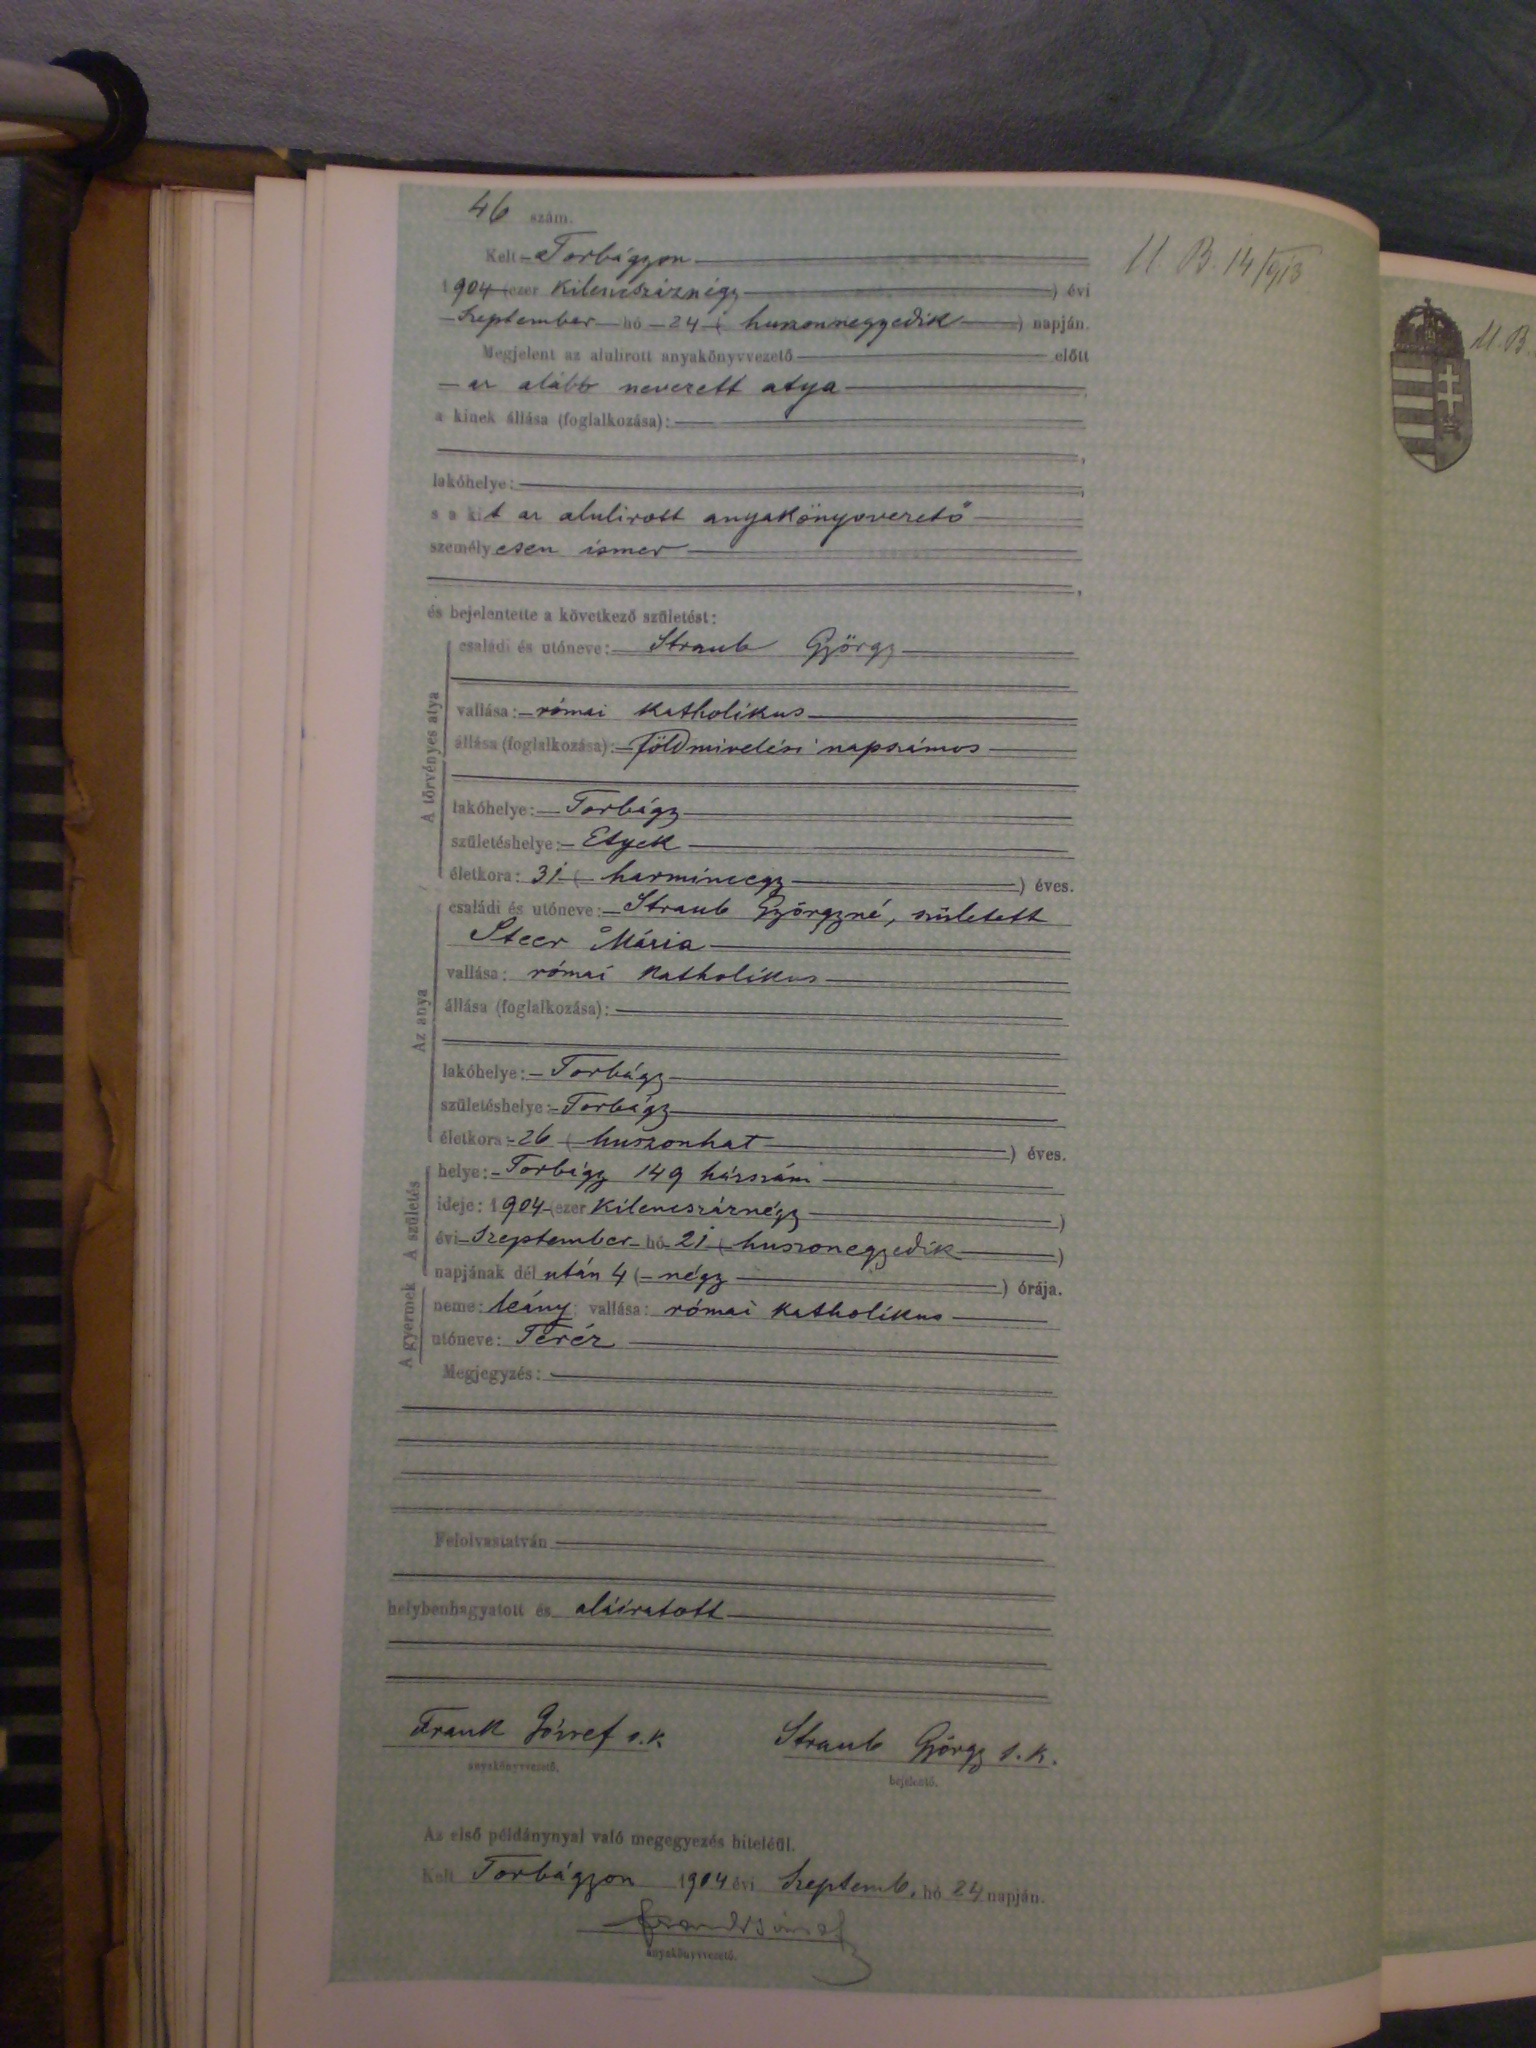 46 szám.
Kelt Torbágyon
1904 (ezer kilenczszáznégy) évi
Szeptember hó 24 (huszonnegyedik) napján.
Megjelent az alulirott anyakönyvvezető előtt
az alább nevezett atya
a kinek állása (foglalkozása):
lakóhelye:
s a kit az alulirott anyakönyvvezető
személyesen ismer
és bejelentette a következő születést:
A törvényes atya
családi és utóneve: Straub György
vallása: római katholikus
állása (foglalkozása): földmivelési napszámos
lakóhelye: Torbágy
születéshelye: Etyek
életkora: 31 (harminczegy) éves.
Az anya
családi és utóneve: Straub Györgyné, született
Steer Mária
vallása: római katholikus
állása (foglalkozása):
lakóhelye: Torbágy
születéshelye: Torbágy
életkora: 26 (huszonhat) éves.
A születés
helye: Torbágy 149 házszám
ideje: 1904 (ezer kilenczszáznégy)
évi Szeptember hó 21 (huszonegyedik)
napjának dél után 4 (négy) órája.
A gyermek
neme: leány; vallása: római katholikus
utóneve: Teréz
Megjegyzés:
Felolvastatván
helybenhagyatott és aláiratott
Frank József s.k. Straub György s.k.
anyakönyvvezető. bejelentő.
Az első példánynyal való megegyezés hiteléül.
Kelt Torbágyon 1904 évi Szeptemb. hó 24 napján.
Frank József
anyakönyvvezető.
U. B. 14/913
U. B.